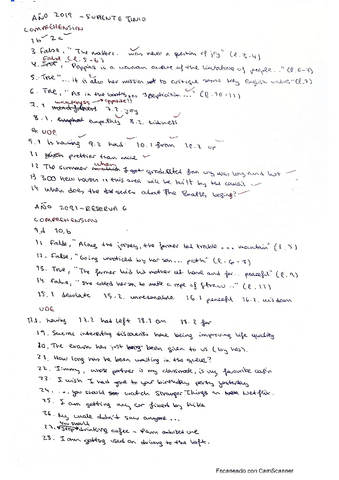 AÑO 2019 - SUPLENTE JUNIO
COMPREHENSION
1b 2c
3 False, "The matters... was never a question of joy" (l. 3-4)
False (l. 5-6)
4. "Poppins is a woman aware of the limitations of people..." (l. 6-7)
5. True "... it is also her mission not to critique some key English values"
6. True, "As in the books, ... scepticism..." (l. 10-11)
7.1 (opposite!!) 7.2. joy
8.1. empathy 8.2. kindness
UOE
9.1 is having 9.2 had 10.1 from 10.2 up
11 prettier than mine
12 The summer when I graduated from was very long and hot
13 300 new houses in this area will be built by the council
14 When does the tour about The Beatles begin?
AÑO 2021 - RESERVA 6
COMPREHENSION
9.d 10.b
11. False, "Along the journey, the farmer had trouble ... mountain" (l. 5)
12. False, "Going unnoticed by her son... path" (l. 6-8)
13. True, "The farmer hid his mother at home and for.. peaceful" (l. 9)
14. False, "She called her son to make a rope of straw..." (l. 11)
15.1 desolate 15.2. unreasonable 16.1 peaceful 16.2. wisdom
UOE
17.1. having 17.2 had left 18.1 on 18.2 for
19. Some interesting discoveries have being improving life quality
20. The exam has just been given to us (by her).
21. How long has he been waiting in the queue?
22. Jimmy, whose partner is my classmate, is my favourite cousin
23. I wish I had gone to your birthday party yesterday
24. ... you should watch Stranger Things in Netflix.
25. I am getting my car fixed by Mike
26. My uncle didn't saw anyone...
you should
27. stop drinking coffee - Pam advised me
28. I am getting used on driving to the left.
Escaneado con CamScanner